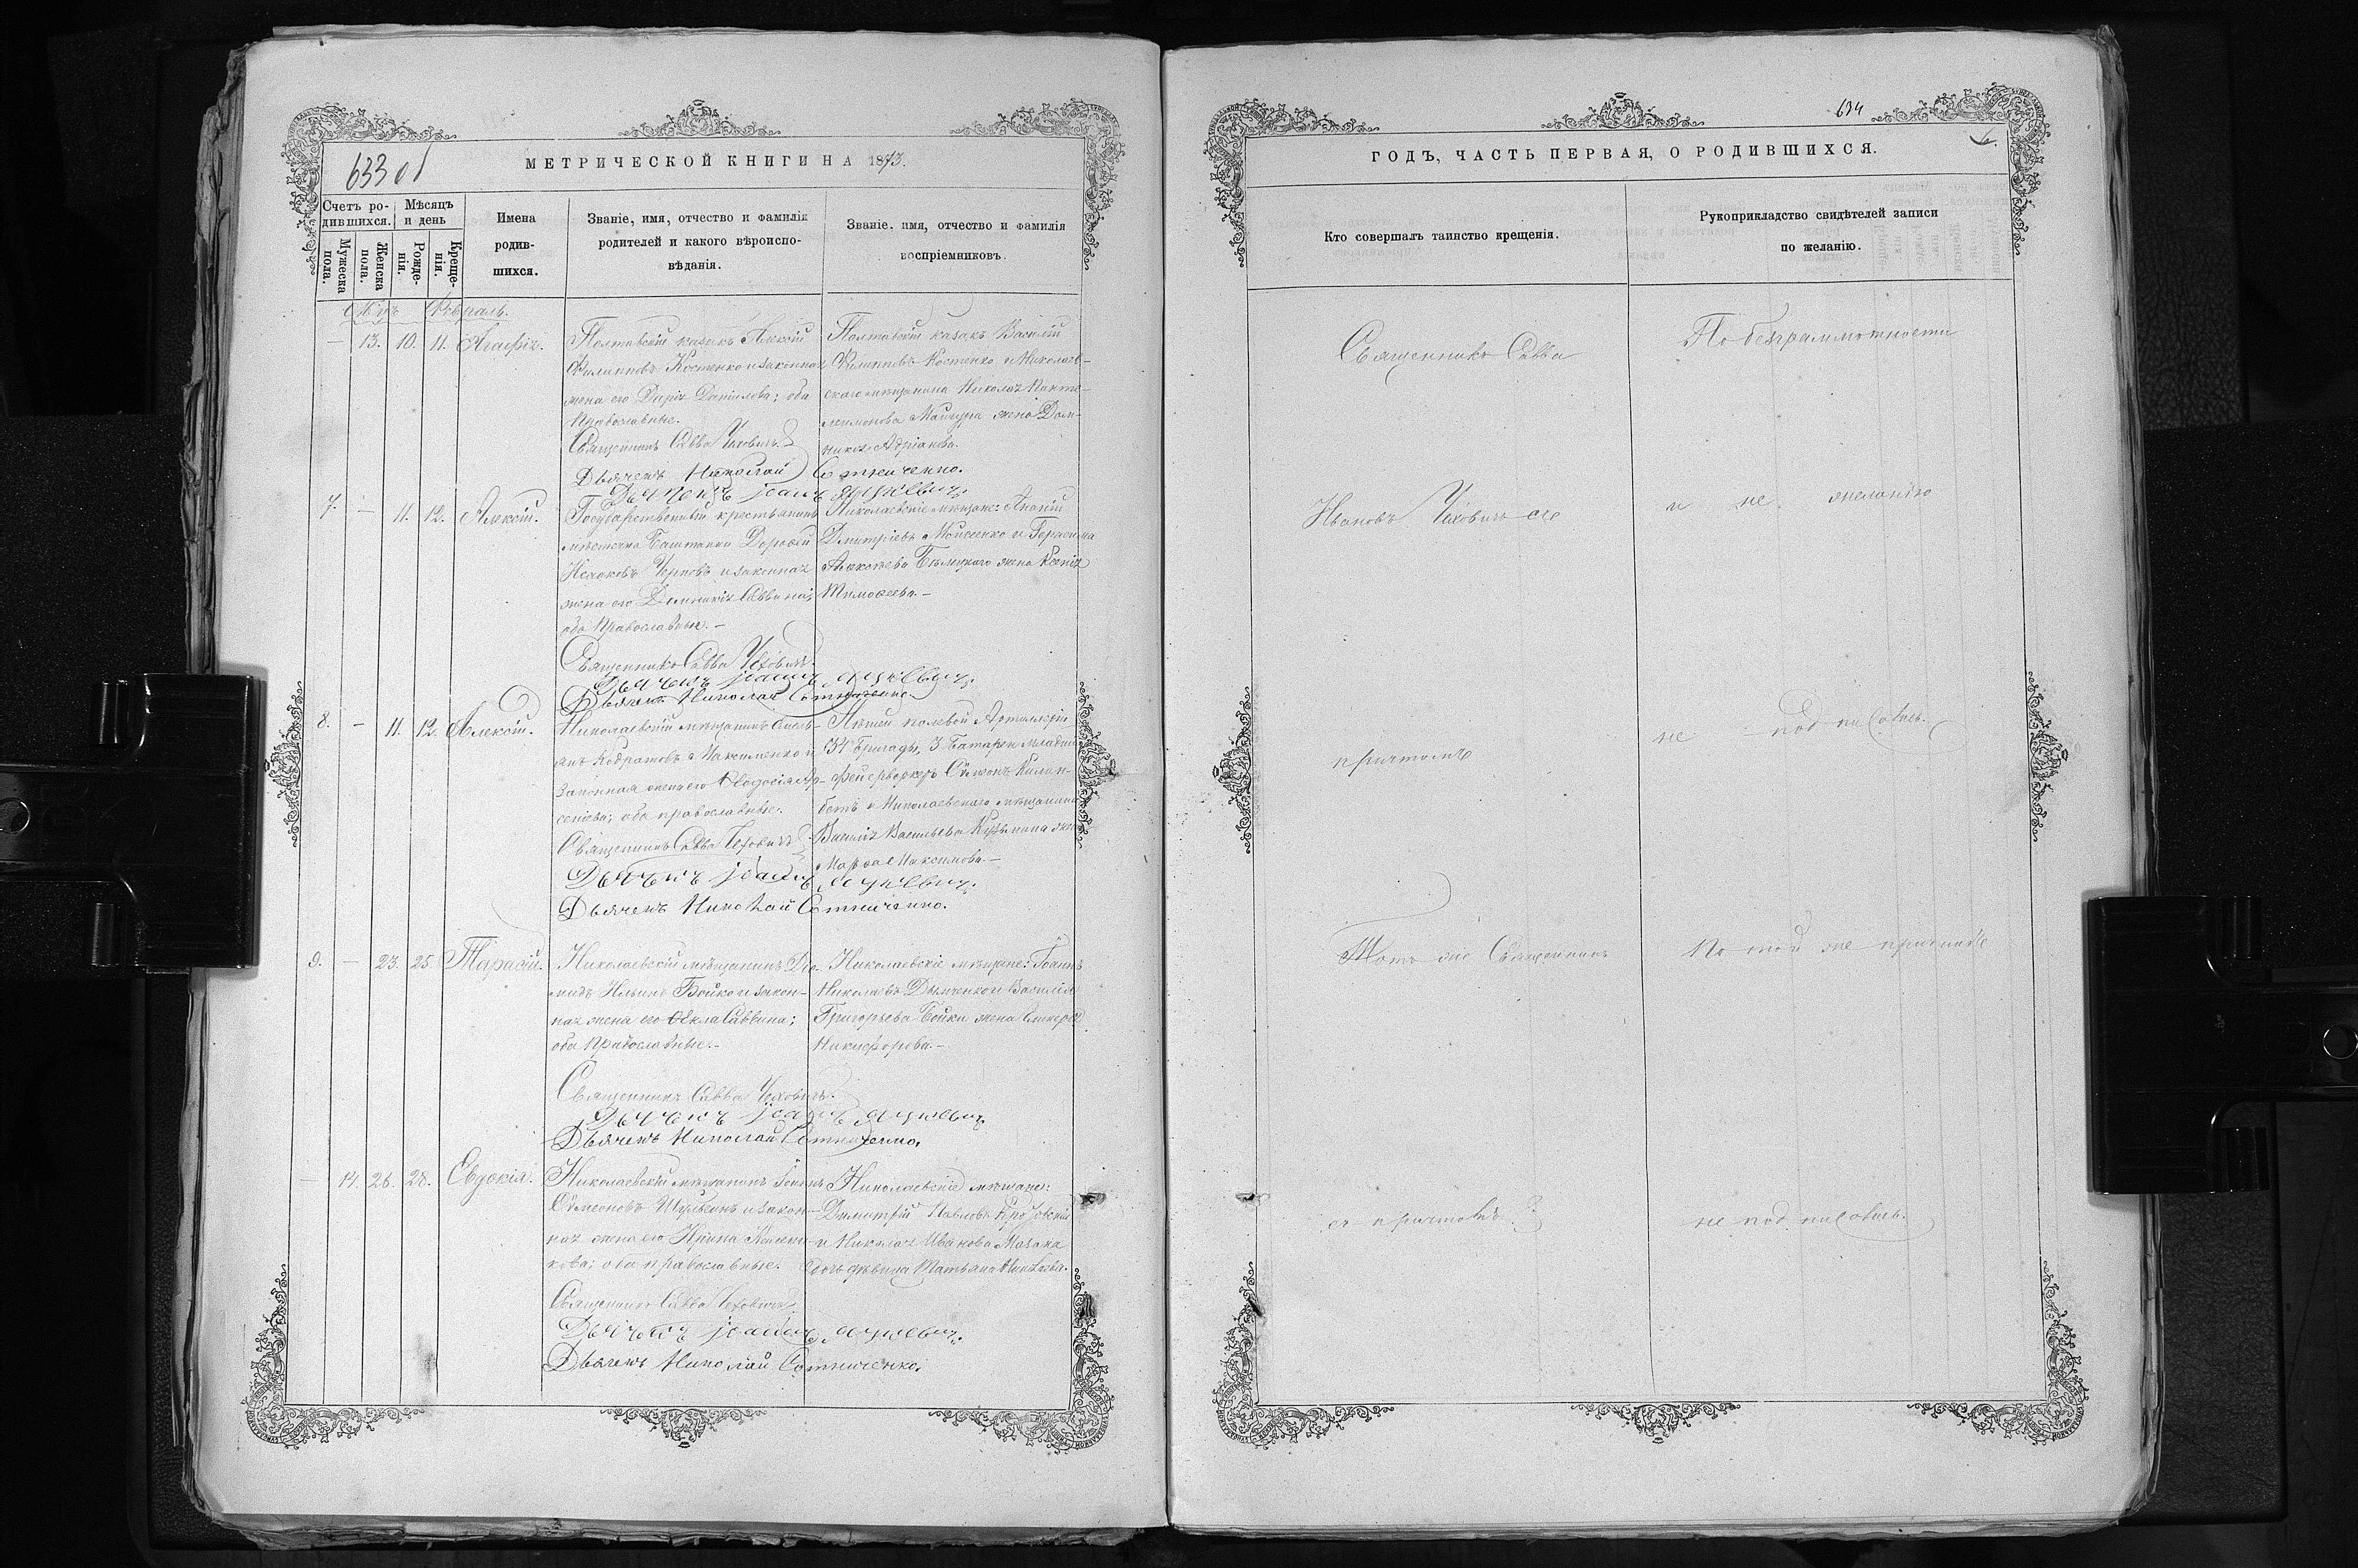 633 об
МЕТРИЧЕСКОЙ КНИГИ НА 1873.
Счетъ ро-
дившихся.
Мѣсяцъ
и день
Мужеска
пола.
Женска
пола.
Рожде-
нія.
Креще-
нія.
Имена
родив-
шихся.
Званіе, имя, отчество и фамилія
родителей и какого вѣроиспо-
вѣданія.
Званіе, имя, отчество и фамилія
воспріемниковъ.
Февраль.
— 13. 10. 11. Агафія.
Полтавскій казакъ Алексій
Филиповъ Костенко и законная
жена его Дарія Даніилова; оба
Православные.
Священникъ Савва Чеховичъ
Дьячекъ Николай Сотниченко.
Дьячекъ Іоаннъ
Полтавскій казакъ Василій
Филиповъ Костенко и Николаев-
скаго мѣщанина Николая Панте-
леимонова жена Дом-
никія Адріанова.
7. — 11. 12. Алексій.
Государственный крестьянинъ
мѣстечка Баштанки Дорофей
Исааковъ и законная
жена его Домникія Саввина;
оба Православные. —
Священникъ Савва Чеховичъ.
Дьячекъ Іоаннъ
Дьячекъ Николай Сотниченко.
Николаевскіе мѣщане: Ананій
Дмитріевъ Моисеенко и Герасима
Алексѣева жена Ксенія
Тимофеева. —
8. — 11. 12. Алексій.
Николаевскій мѣщанинъ
Кодратовъ Максименко и
законная жена его Ѳеодосія Ар-
сеніева; оба православные.
Священникъ Савва Чеховичъ
Дьячекъ Іоаннъ
Дьячекъ Николай Сотниченко.
Пѣшей полевой Артиллеріи
Бригады, 3 Батареи младшій
фейерверкеръ Сѵмеонъ
и Николаевскаго мѣщанина
Василія Васильева жена
Марѳа Максимова —
9. — 23. 25. Тарасій.
Николаевскій мѣщанинъ Діо-
мидъ Ильинъ Бойко и закон-
ная жена его Ѳекла Саввина;
оба Православные. —
Священникъ Савва Чеховичъ.
Дьячекъ Іоаннъ
Дьячекъ Николай Сотниченко.
Николаевскіе мѣщане: Іоаннъ
Николаевъ и Василія
Григорьева Бойки жена Гликерія
Никифорова. —
— 14. 26. 28. Евдокія.
Николаевскій мѣщанинъ Іоаннъ
Сѵмеоновъ и закон-
ная жена его Ирина
оба православные.
Священникъ Савва Чеховичъ.
Дьячекъ Іоаннъ
Дьячекъ Николай Сотниченко.
Николаевскіе мѣщане:
Димитрій Павловъ
и Николая Иванова
дочь дѣвица Татьяна Николаева.
634
ГОДЪ, ЧАСТЬ ПЕРВАЯ, О РОДИВШИХСЯ.
Кто совершалъ таинство крещенія.
Рукоприкладство свидѣтелей записи
по желанію.
Священникъ Савва
Ивановъ Чеховичъ съ
причтомъ
Тотъ же Священникъ
съ причтомъ.
По безграммотности
и не желанію
не подписались.
По той же причинѣ
не подписались.